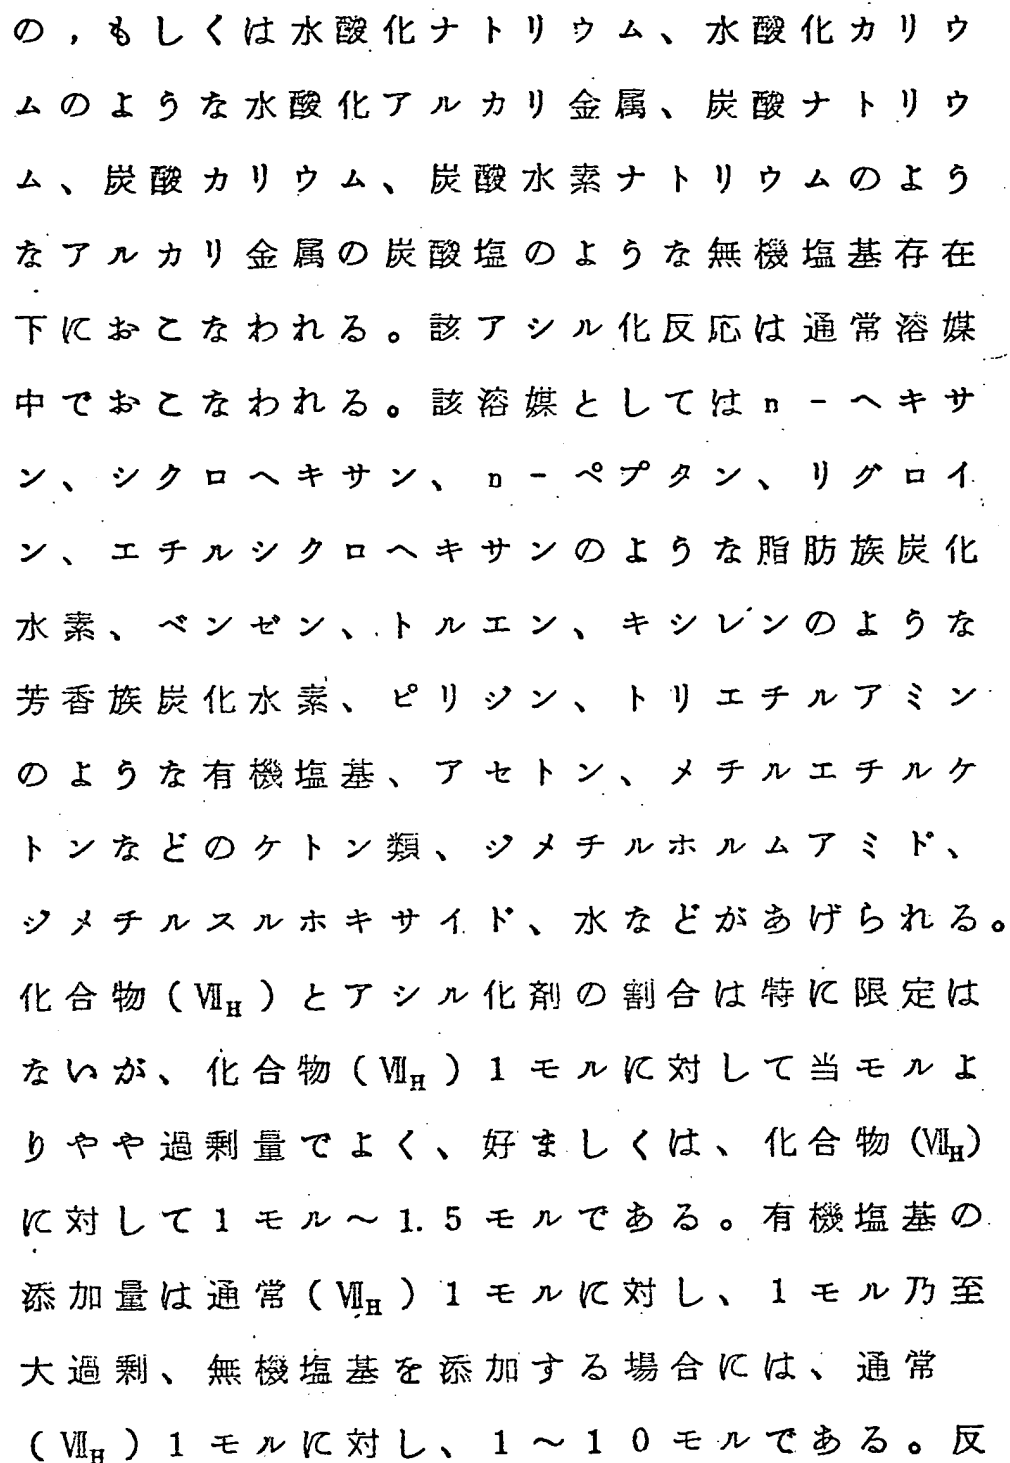 の，もしくは水酸化ナトリウム、水酸化カリウ
ムのような水酸化アルカリ金属、炭酸ナトリウ
ム、炭酸カリウム、炭酸水素ナトリウムのよう
なアルカリ金属の炭酸塩のような無機塩基存在
下におこなわれる。該アシル化反応は通常溶媒
中でおこなわれる。該溶媒としてはn－ヘキサ
ン、シクロヘキサン、n－ペプタン、リグロイ
ン、エチルシクロヘキサンのような脂肪族炭化
水素、ベンゼン、トルエン、キシレンのような
芳香族炭化水素、ピリジン、トリエチルアミン
のような有機塩基、アセトン、メチルエチルケ
トンなどのケトン類、ジメチルホルムアミド、
ジメチルスルホキサイド、水などがあげられる。
化合物（Ⅶ_H）とアシル化剤の割合は特に限定は
ないが、化合物（Ⅶ_H）1モルに対して当モルよ
りやや過剰量でよく、好ましくは、化合物（Ⅶ_H）
に対して1モル～1.5モルである。有機塩基の
添加量は通常（Ⅶ_H）1モルに対し、1モル乃至
大過剰、無機塩基を添加する場合には、通常
（Ⅶ_H）1モルに対し、1～10モルである。反